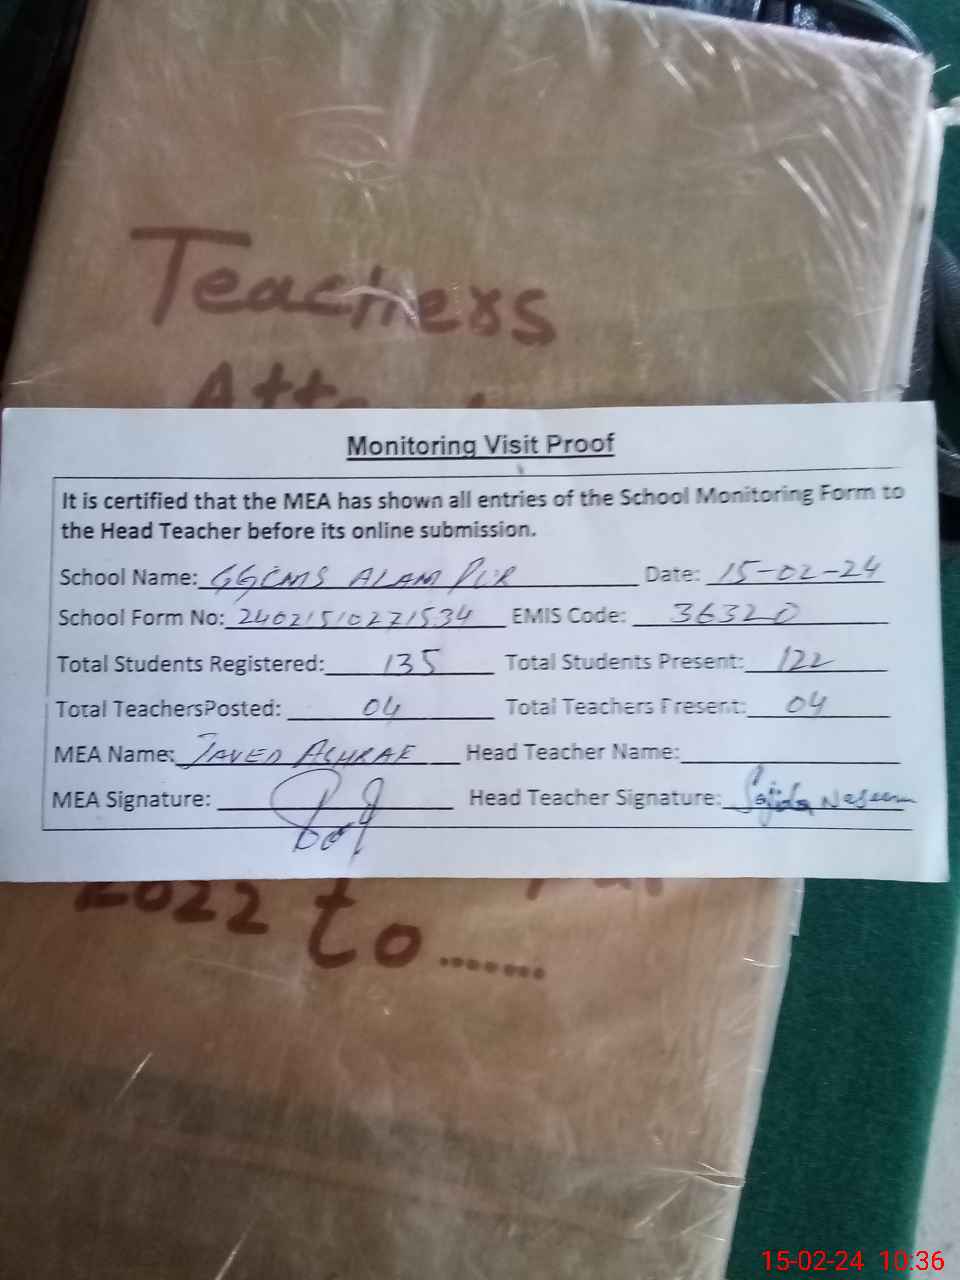 Teachers
Monitoring Visit Proof
It is certified that the MEA has shown all entries of the School Monitoring Form to
the Head Teacher before its online submission.
School Name: GGCMS ALAM PUR Date: 15-02-24
School Form No: 24021510271534 EMIS Code: 36320
Total Students Registered: 135 Total Students Present: 122
Total TeachersPosted: 04 Total Teachers Present: 04
MEA Name: JAVED ASHRAF Head Teacher Name:
MEA Signature: Head Teacher Signature: Sajida Naseem
2022 to.......
15-02-24 10:36